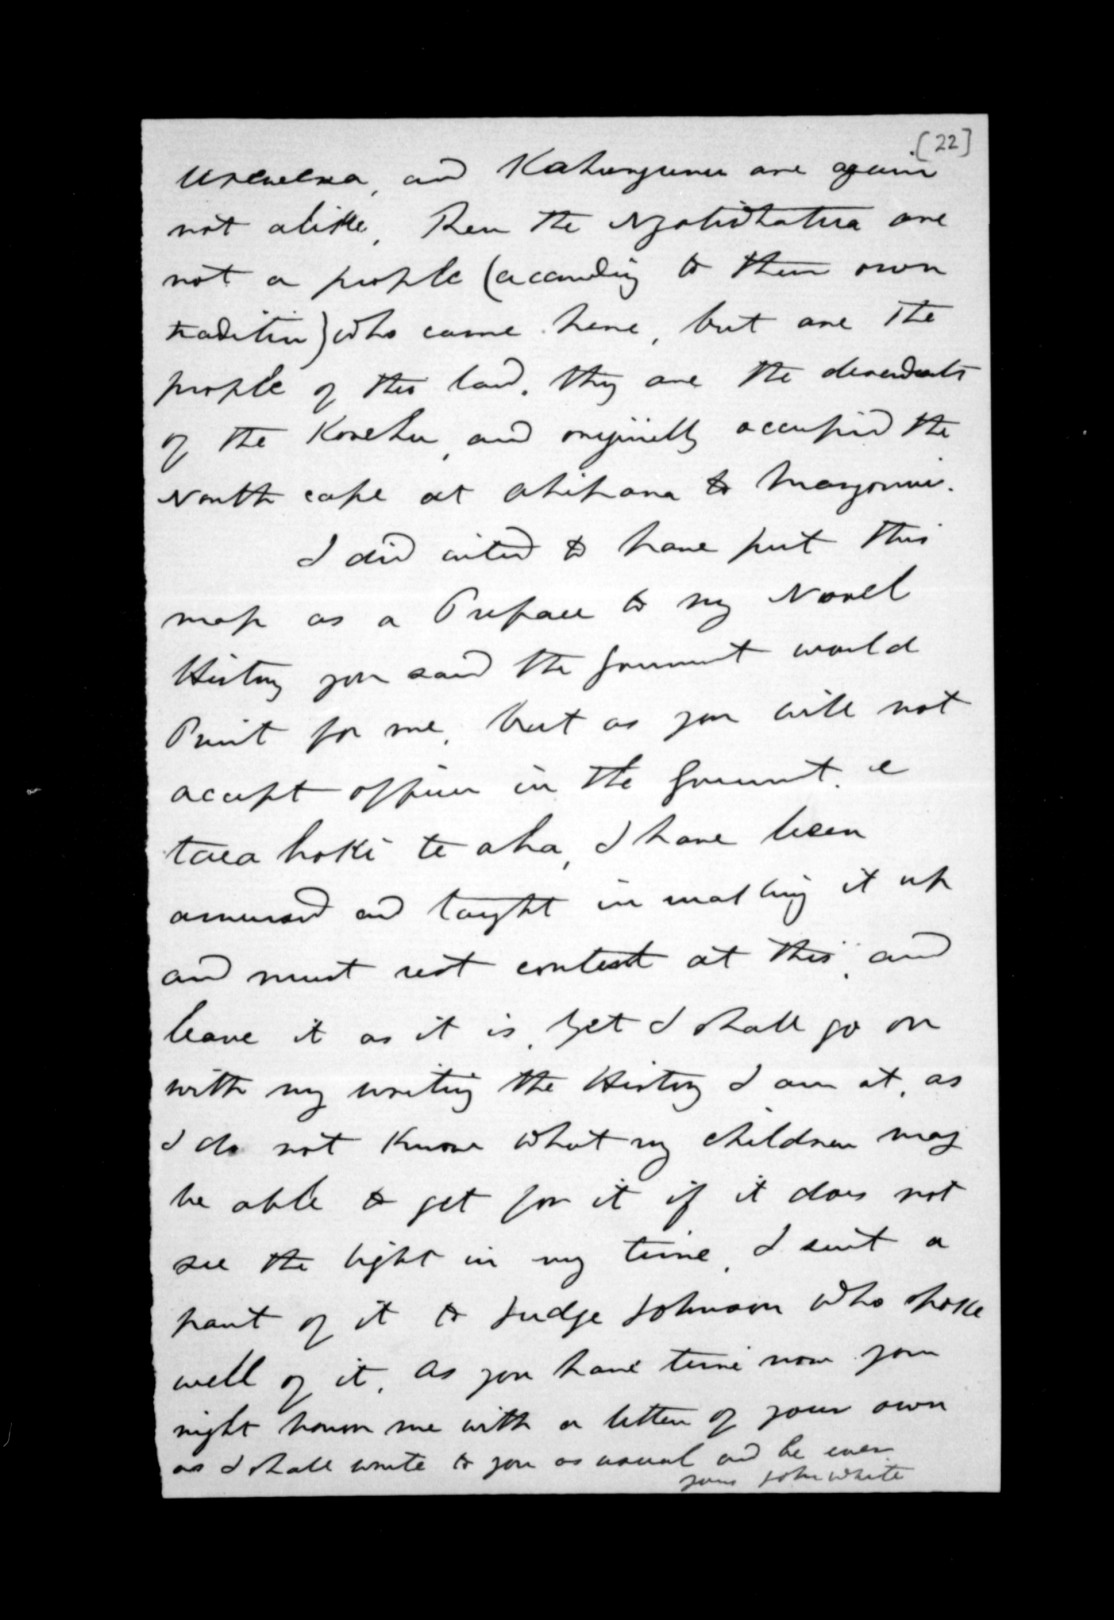 [22]
Urewera, and Kahungunu are again
not alike, Then the Ngatiwhatua are
not a people (according to their own
tradition) who came here, but are The
people of this land. they are the decendents
of the Korehu, and originelly occupied the
North cape at Ahipara to Mangonui.
I did inted to have put This
map as a Preface to my Novel
History you said the Goverment would
Print for me, but as you will not
accept office in the Goverment. e
taea hoki te aha, I have been
amused and taught in making it up
and must rest content at this, and
leave it as it is, Yet I shall go on
with my writing the History I am at, as
I do not know what my children may
be able to get for it if it does not
see the light in my time, I sent a
part of it to Judge Johnson who spoke
well of it, As you have time now you
might honour me with a letter of your own
as I shall write to you as usual and be ever
yours John White